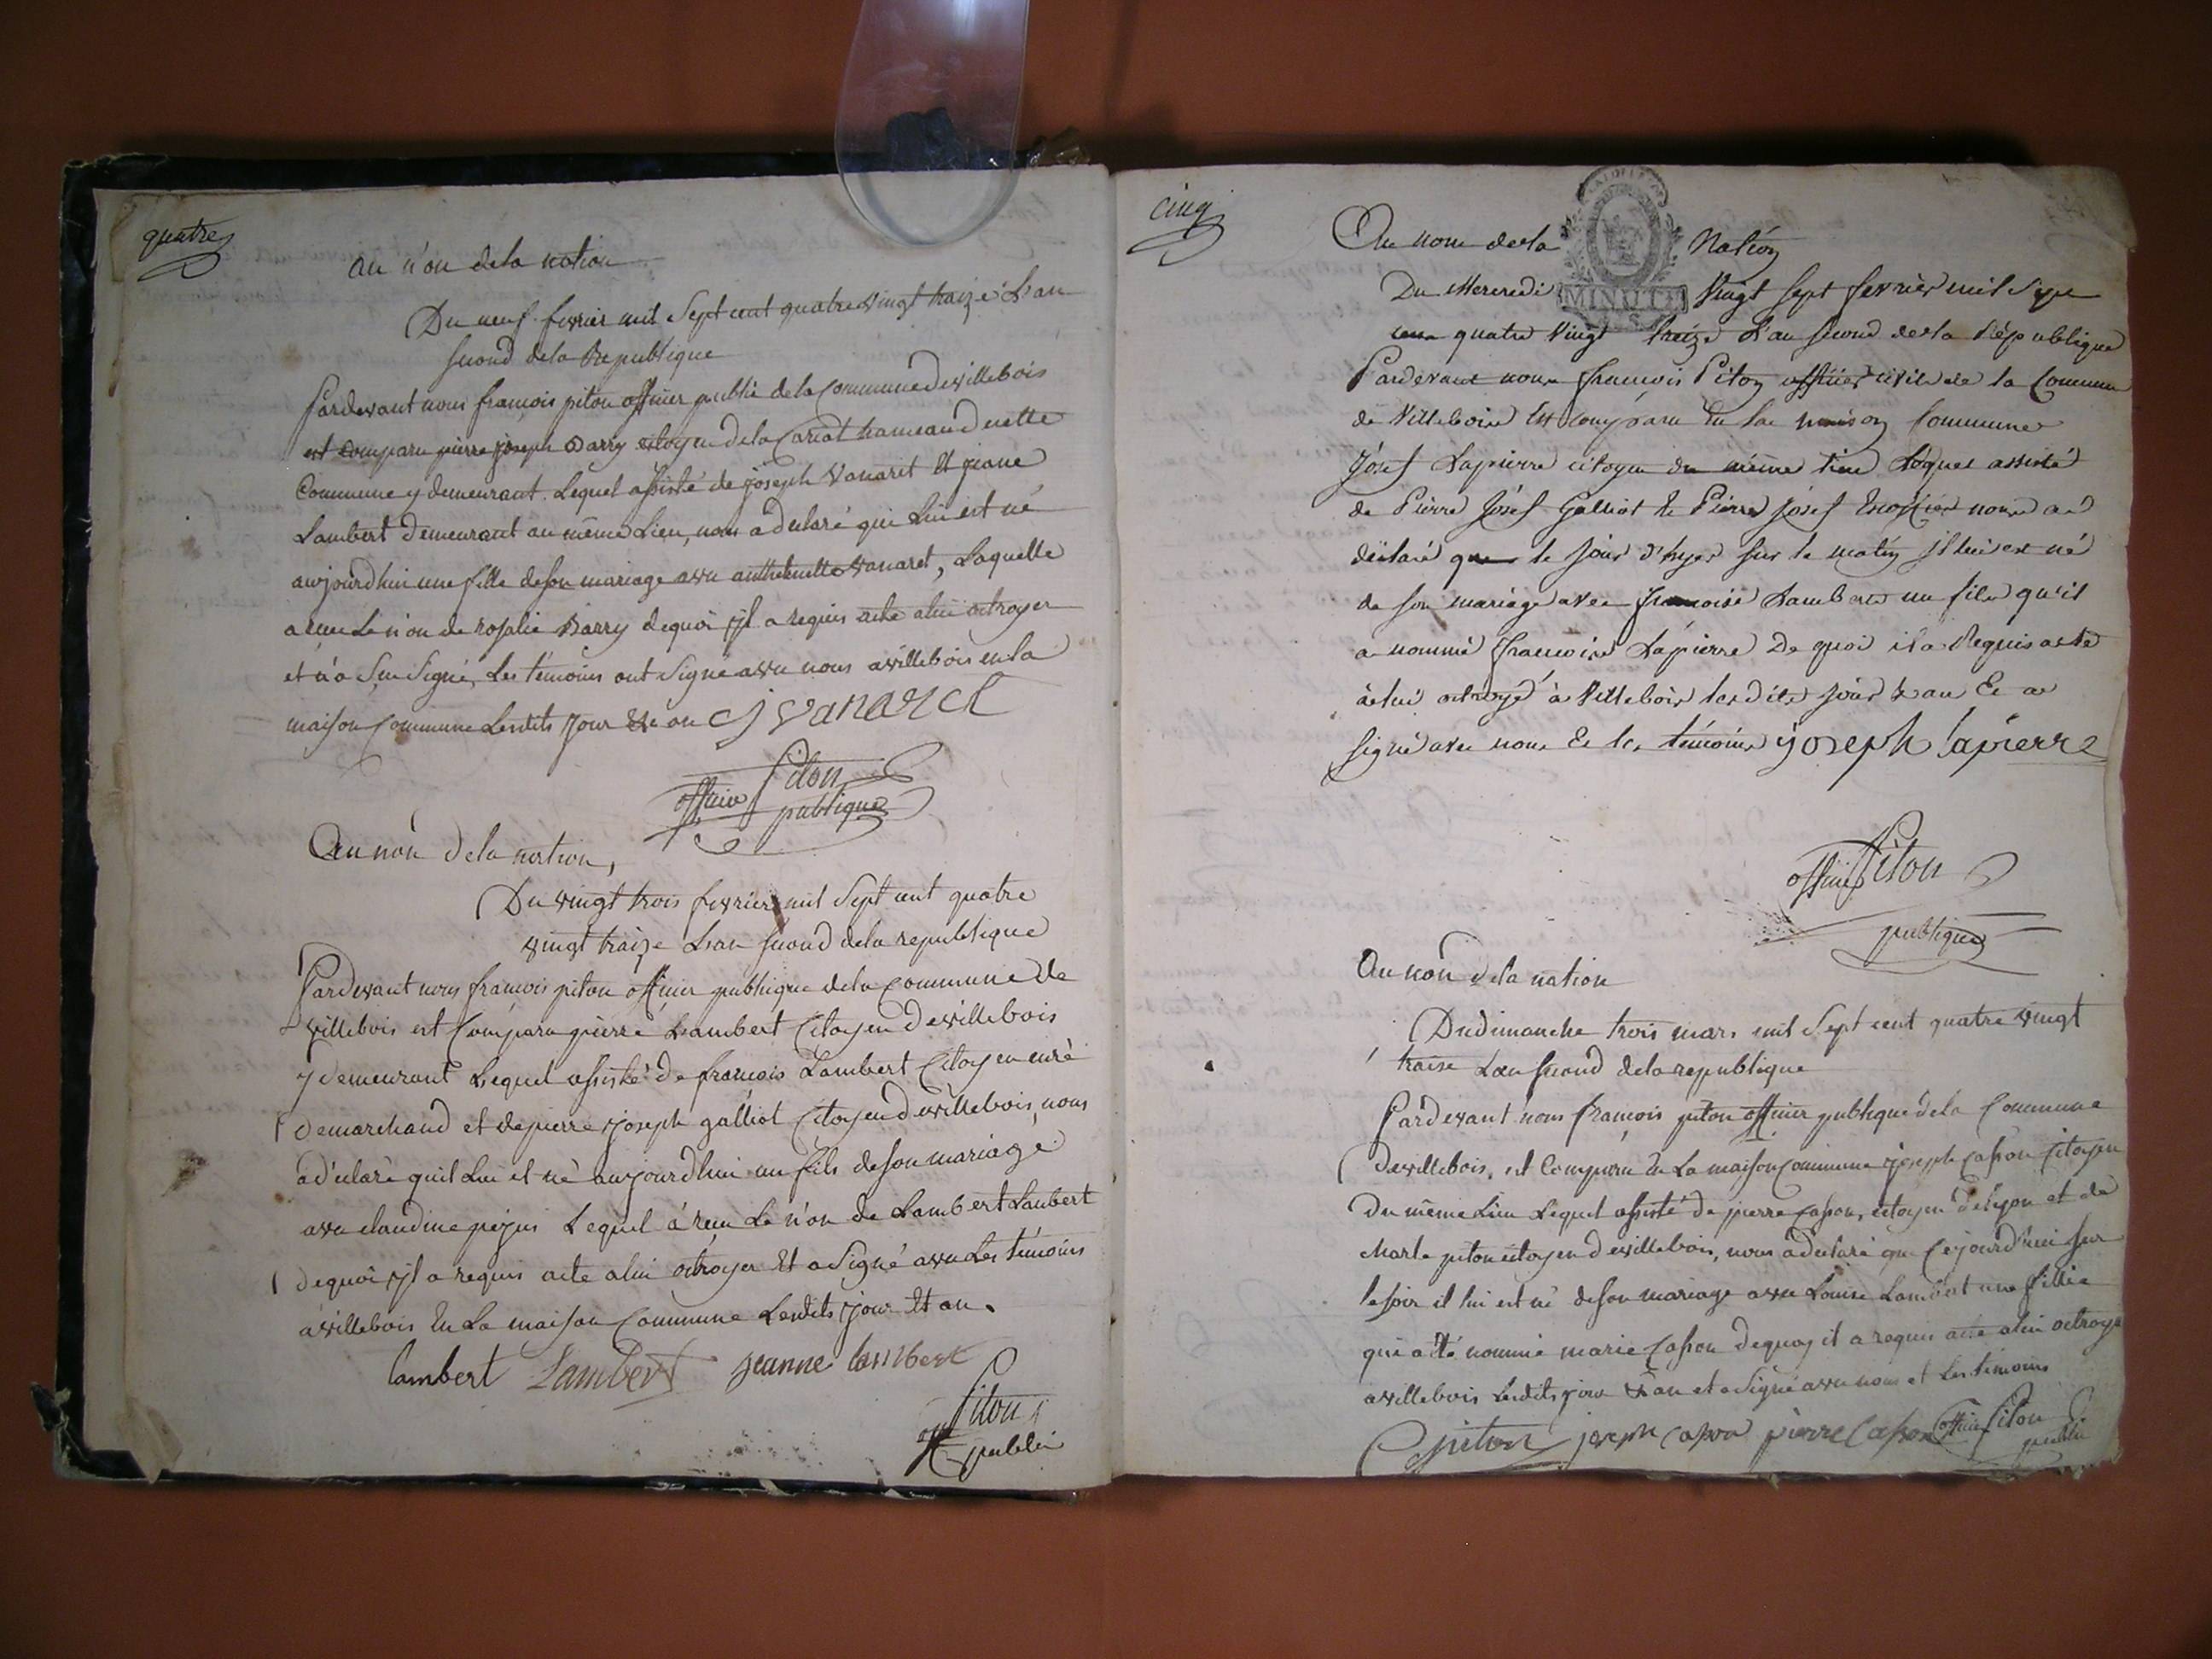 quatre
au n'on dela nation
Du neuf fevrier mil Sept cent quatre vingt traize L'an
second dela Republique
Pardevant nous françois piton officier public de la Commune devillebois
est Comparu pierre joseph Barry citoyen dela hameaud
Commune y demeurant. Lequel assisté de joseph vanaret Et jeane
Lambert demeurant au même Lieu, nous a declaré qui Lui est né
aujourdhui une fille deson mariage avec vanaret, Laquelle
a reçu Le n'on de rosalie Barry dequoi jl a requis acte alui octroyer
et n'a Sçu Signé, Les témoins ont Signé avec nous avillebois en la
maison Commune Lesdits jour Et an cj vanaret
Piton
officier publique
Au nón dela nation,
Du vingt trois fevrier mil Sept cent quatre
vingt traize L'an second dela republique
Pardevant nous françois piton officier publique dela Commune de
villebois est Comparu pierre Lambert Citoyen devillebois
y demeurant Lequel assisté de françois Lambert Citoyen curé
demarchand et depierre joseph galliot Citoyen devillebois, nous
a declaré quil Lui et né aujourdhui un fils deson mariage
avec claudine pejus Lequel á reçu Le n'on de Lambert Lanbert
dequoi jl a requis acte alui octroyer Et a Signé avec Les témoins
avillebois En La maison Commune Lesdits jour Et an.
lambert Lambert jeanne lambert
Piton
off public
cinq
Au nom de la Nation
MINUTE
Du Mercredi Vingt sept fevrier mil sept
cent quatre Vingt treize L'an second de la République
Pardevant nous francois Piton officier civil de la Commune
de Villebois Est Comparu En la maison Commune
Jósef Lapierre citoyen du même lieu Lequel assisté
de Pierre Jósef Galliot & Pierre Jósef nous a
déclaré que le jour d'hyer sur le matin jl lui est né
de son mariage avec francoise Lambert un fils qu'il
a nommé francois Lapierre De quoi il a Requis acte
à lui octroyé à Villebois lesdits jour & an Et a
signé avec nous & les témoins joseph lapierre
officier Piton
publique
Au nón dela nation
Du dimanche trois mars mil Sept cent quatre vingt
traise L'an second dela republique
Pardevant nous françois piton officier publique dela Commune
devillebois, est Comparu En La maison Commune joseph Cason Citoyen
du même Lieu Lequel assisté de pierre Cason, citoyen de Lyon et de
Marte piton citoyen devillebois, nous a declaré que Cejourd'hui sur
le soir il lui est né deson mariage avec Louise Lambert une fillie
qui a été nommé marie Cason dequoy il a requis acte alui octroyé
avillebois Lesdits jour & an et a Signé avec nous et Les témoins
piton joseph Cason pierre Cason officier Piton
public